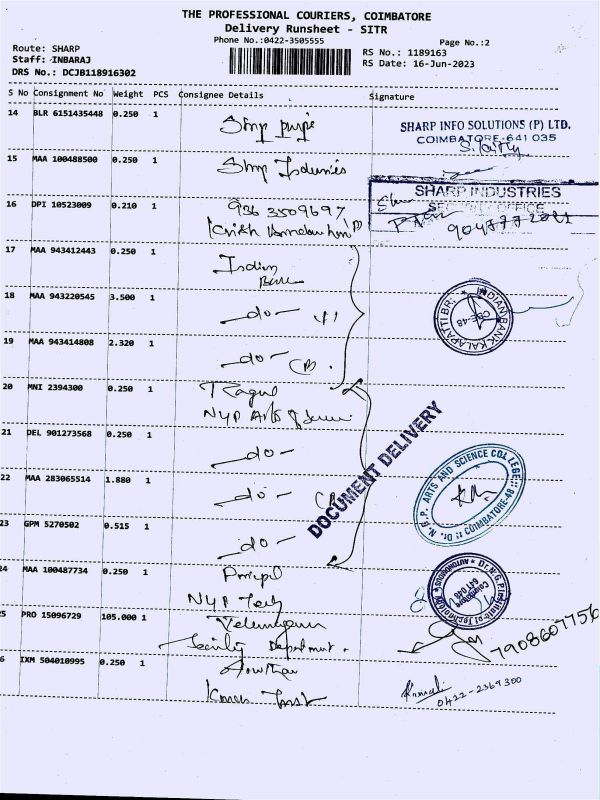 THE PROFESSIONAL COURIERS, COIMBATORE
Delivery Runsheet - SITR
Phone No.:0422-3505555
Page No.:2
Route: SHARP
Staff: INBARAJ
DRS No.: DCJB118916302
RS No.: 1189163
RS Date: 16-Jun-2023
S No Consignment No Weight PCS Consignee Details Signature
14 BLR 6151435448 0.250 1
SHARP INFO SOLUTIONS (P) LTD.
COIMBATORE-641 035
15 MAA 100488500 0.250 1
SHARP INDUSTRIES
SECURITY OFFICE
16 DPI 10523009 0.210 1 936 3509697
17 MAA 943412443 0.250 1 Indian
Bank
18 MAA 943220545 3.500 1 -do-
INDIAN BANK, KALAPATTI BR.
CBE-48
19 MAA 943414808 2.320 1 -do-
20 MNI 2394300 0.250 1
NGP Arts &
21 DEL 901273568 0.250 1 -do-
DOCUMENT DELIVERY
22 MAA 283065514 1.880 1 -do-
Dr. N. G. P. ARTS AND SCIENCE COLLEGE
COIMBATORE-48
23 GPM 5270502 0.515 1 -do-
24 MAA 100487734 0.250 1
NGP Tech
Dr. N.G.P. Institute of Technology
AUTONOMOUS
Coimbatore
641 048
25 PRO 15096729 105.000 1
Security Department.
7908607756
26 IXM 504010995 0.250 1
0422-2369300